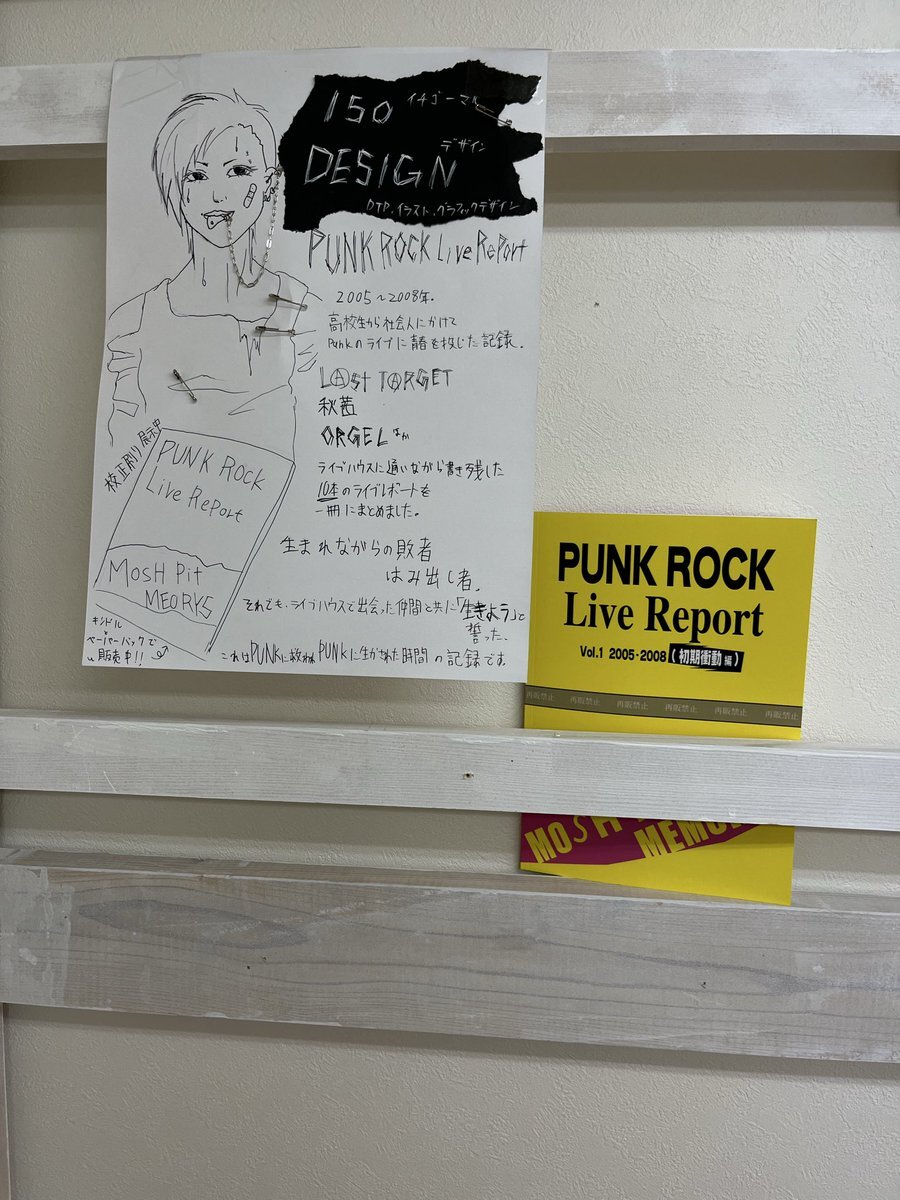 150 イチゴーマル
DESIGN デザイン
DTP.イラスト.グラフィックデザイン
PUNK ROCK Live RePort
2005～2008年.
高校生から社会人にかけて
Punkのライブに青春を投じた記録.
LAst TARGET
秋茜
ORGEL ほか
ライブハウスに通いながら書き残した
10本のライブレポートを
一冊にまとめました。
生まれながらの敗者
はみ出し者。
それでも、ライブハウスで出会った仲間と共に「生きよう」と
誓った、
これはPUNKに救われ PUNKに生かされた時間の記録です
校正刷り展示中
PUNK Rock
Live RePort
MosH Pit
MEORYS
キンドル
ペーパーバックで
販売中!!
PUNK ROCK
Live Report
Vol.1 2005-2008 (初期衝動編)
再販禁止 再販禁止 再販禁止 再販禁止 再販禁止 再販禁止
MOSH
MEMO